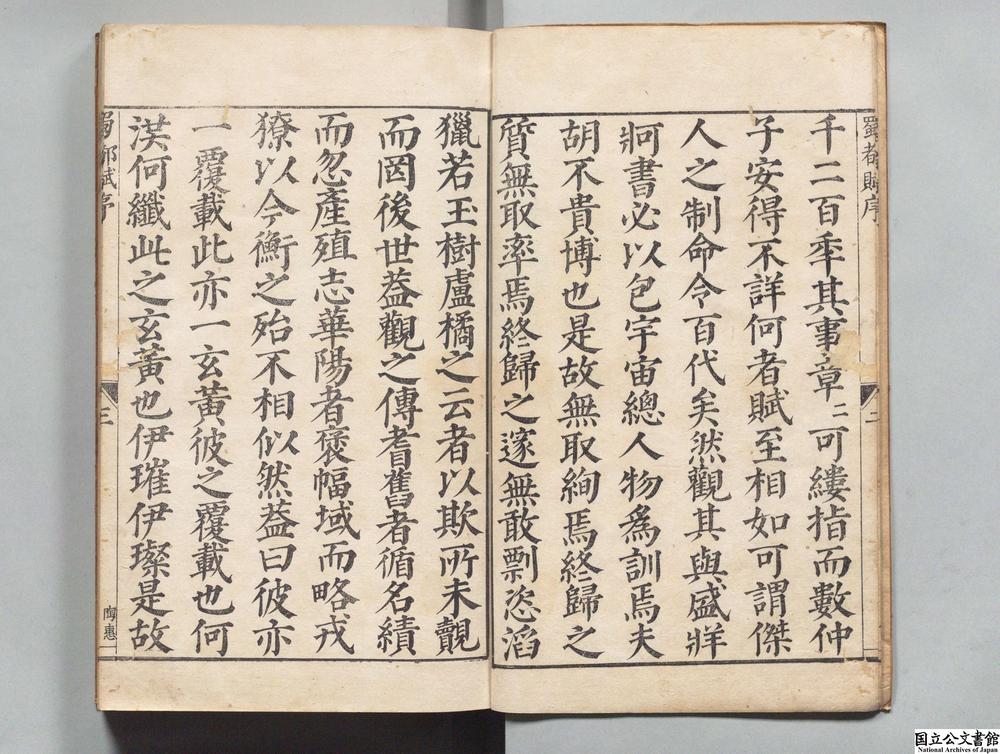 蜀都賦序
二
千二百季其事章〻可縷指而數仲
子安得不詳何者賦至相如可謂傑
人之制命令百代矣然觀其與盛牂
牁書必以包宇宙總人物為訓焉夫
胡不貴博也是故無取絢焉終歸之
質無取率焉終歸之邃無敢剽恣滔
獵若玉樹盧橘之云者以欺所未覩
而罔後世葢觀之傳耆舊者循名績
而忽產殖志華陽者褒幅域而略戎
獠以今衡之殆不相似然葢曰彼亦
一覆載此亦一玄黃彼之覆載也何
洪何纖此之玄黃也伊璀伊璨是故
蜀都賦序
三
陶惠
国立公文書館
National Archives of Japan